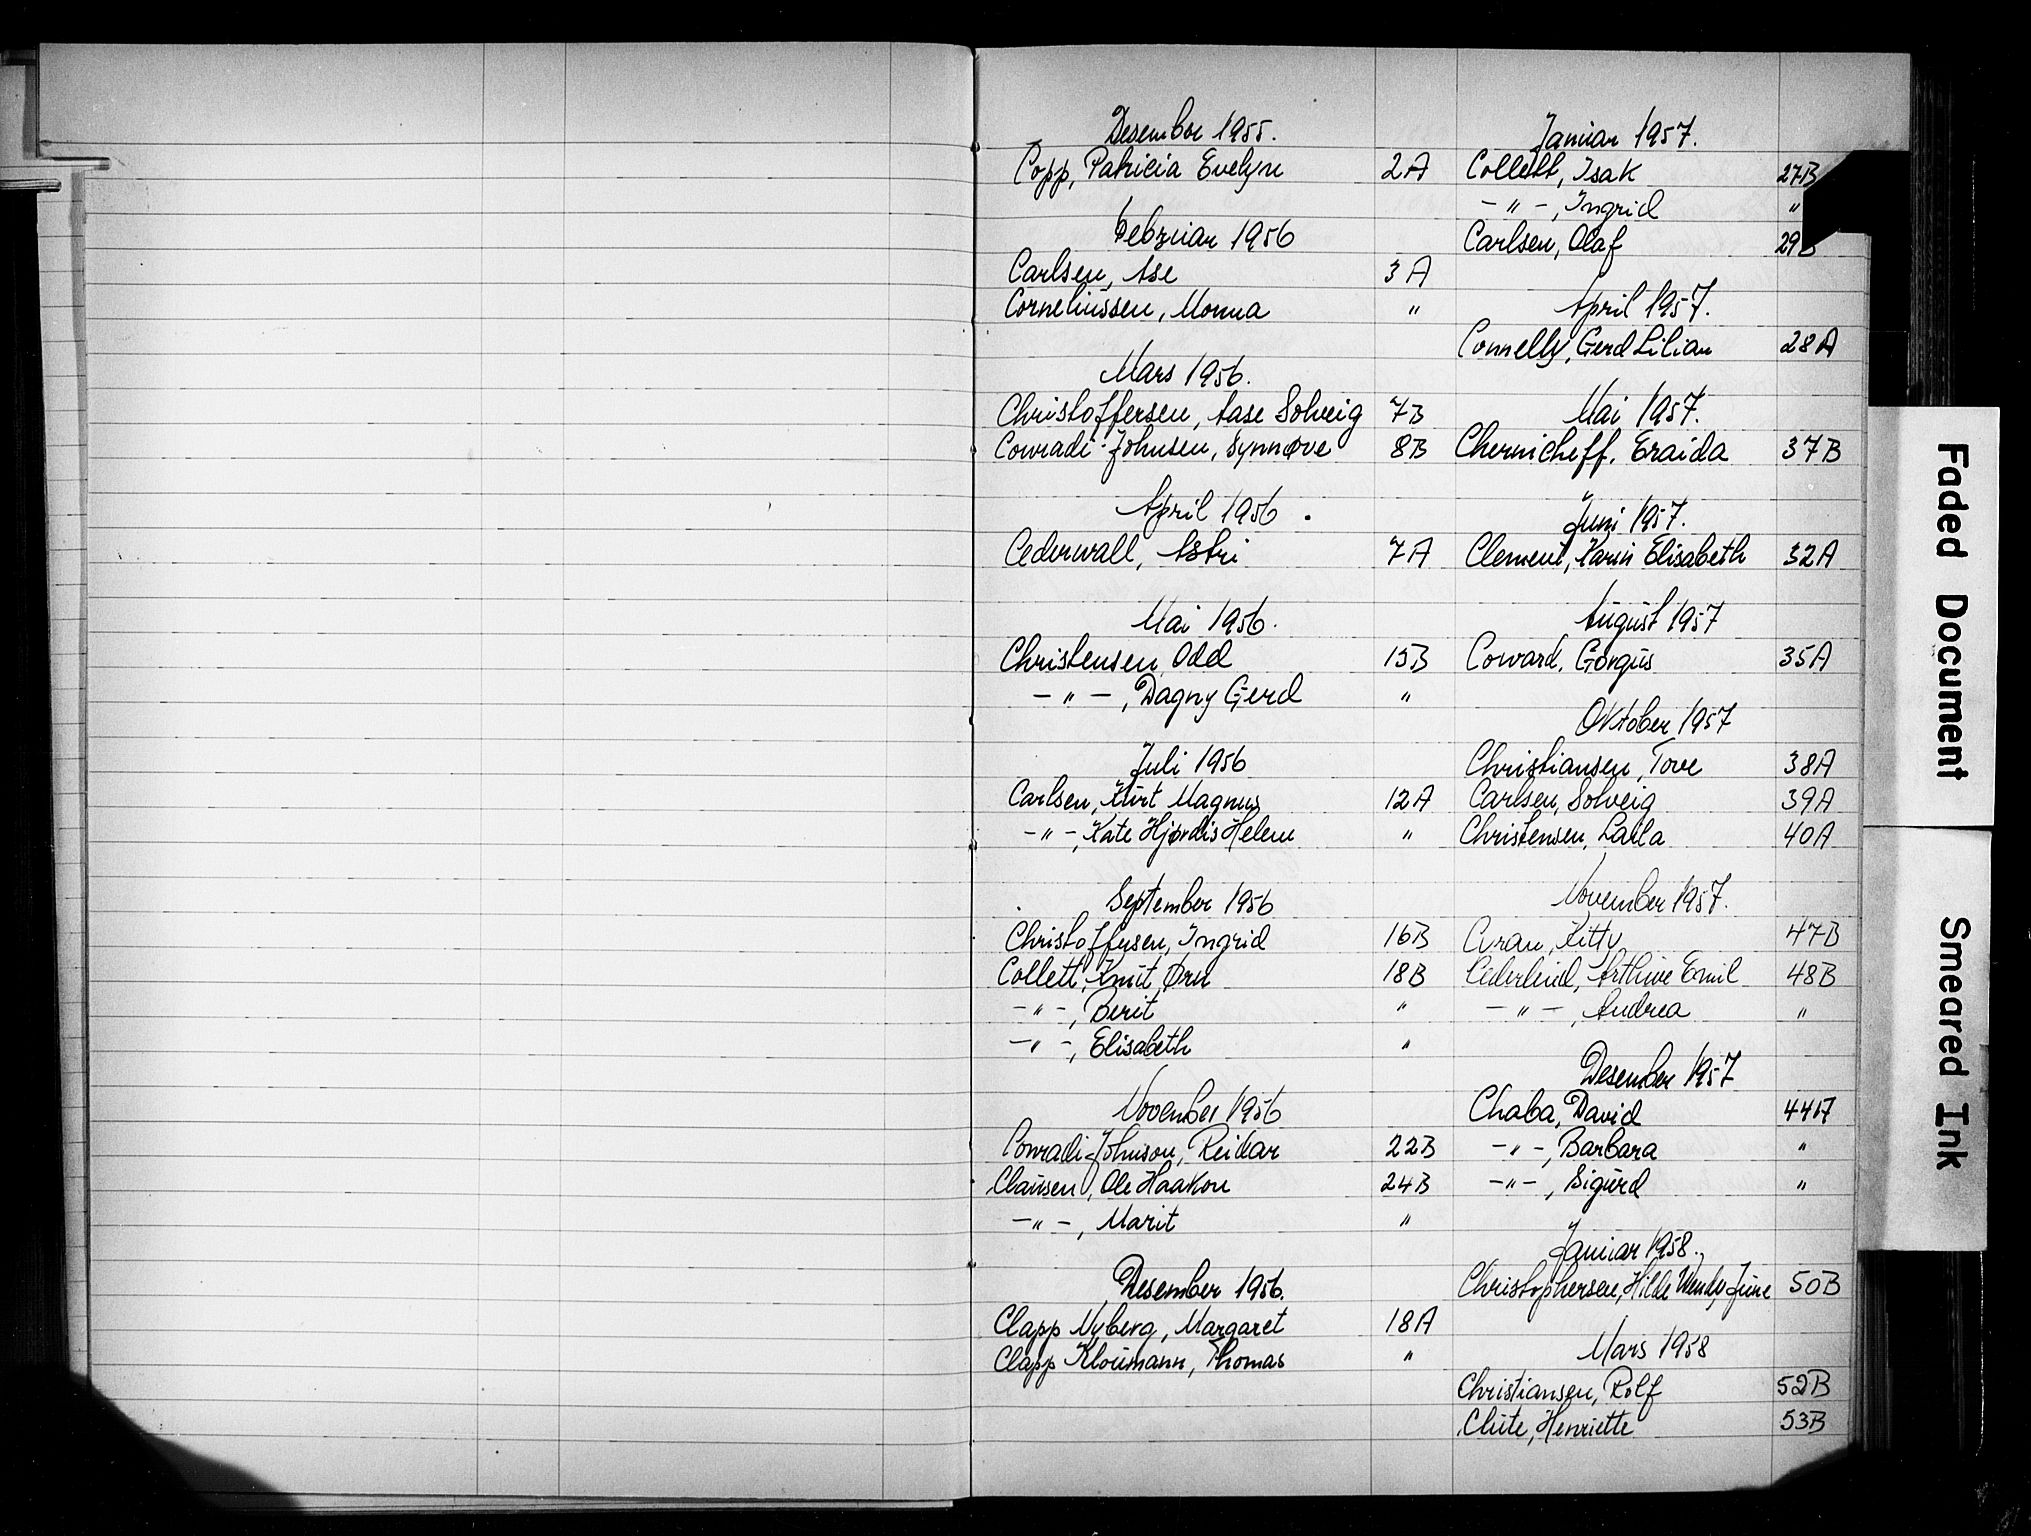 Desember 1955.
Copp, Patricia Evelyn 2A
Februar 1956
Carlsen, Ase 3A
Corneliussen, Monna "
Mars 1956.
Christoffersen, Aase Solveig 7B
Conradi-Johnsen, Synnøve 8B
April 1956.
Cederwall, Astri 7A
Mai 1956.
Christensen, Odd 15B
-"-, Dagny Gerd "
Juli 1956
Carlsen, Kurt Magnus 12A
-"-, Kate Hjørdis Helene "
September 1956
Christoffersen, Ingrid 16B
Collett, Knut Ørn 18B
-"-, Berit "
-"-, Elisabeth "
November 1956
Conradi-Johnson, Reidar 22B
Clausen, Ole Haakon 24B
-"-, Marit "
Desember 1956.
Clapp Nyberg, Margaret 18A
Clapp Kloumann, Thomas "
Januar 1957.
Collett, Isak 27B
-"-, Ingrid "
Carlsen, Olaf 29B
April 1957.
Connelly, Gerd Lilian 28A
Mai 1957.
Chernicheff, Eraida 37B
Juni 1957.
Clement, Karin Elisabeth 32A
August 1957
Coward, Gorgus 35A
Oktober 1957
Christiansen, Tove 38A
Carlsen, Solveig 39A
Christensen, Laila 40A
November 1957.
Kitty 47B
Cederlund, Arthur Emil 48B
-"-, Andrea "
Desember 1957
Chaba, David 44A
-"-, Barbara "
-"-, Sigurd "
Januar 1958.
Christophersen, Hilde Wendy June 50B
Mars 1958
Christiansen, Rolf 52B
Clute, Henriette 53B
Faded Document
Smeared Ink